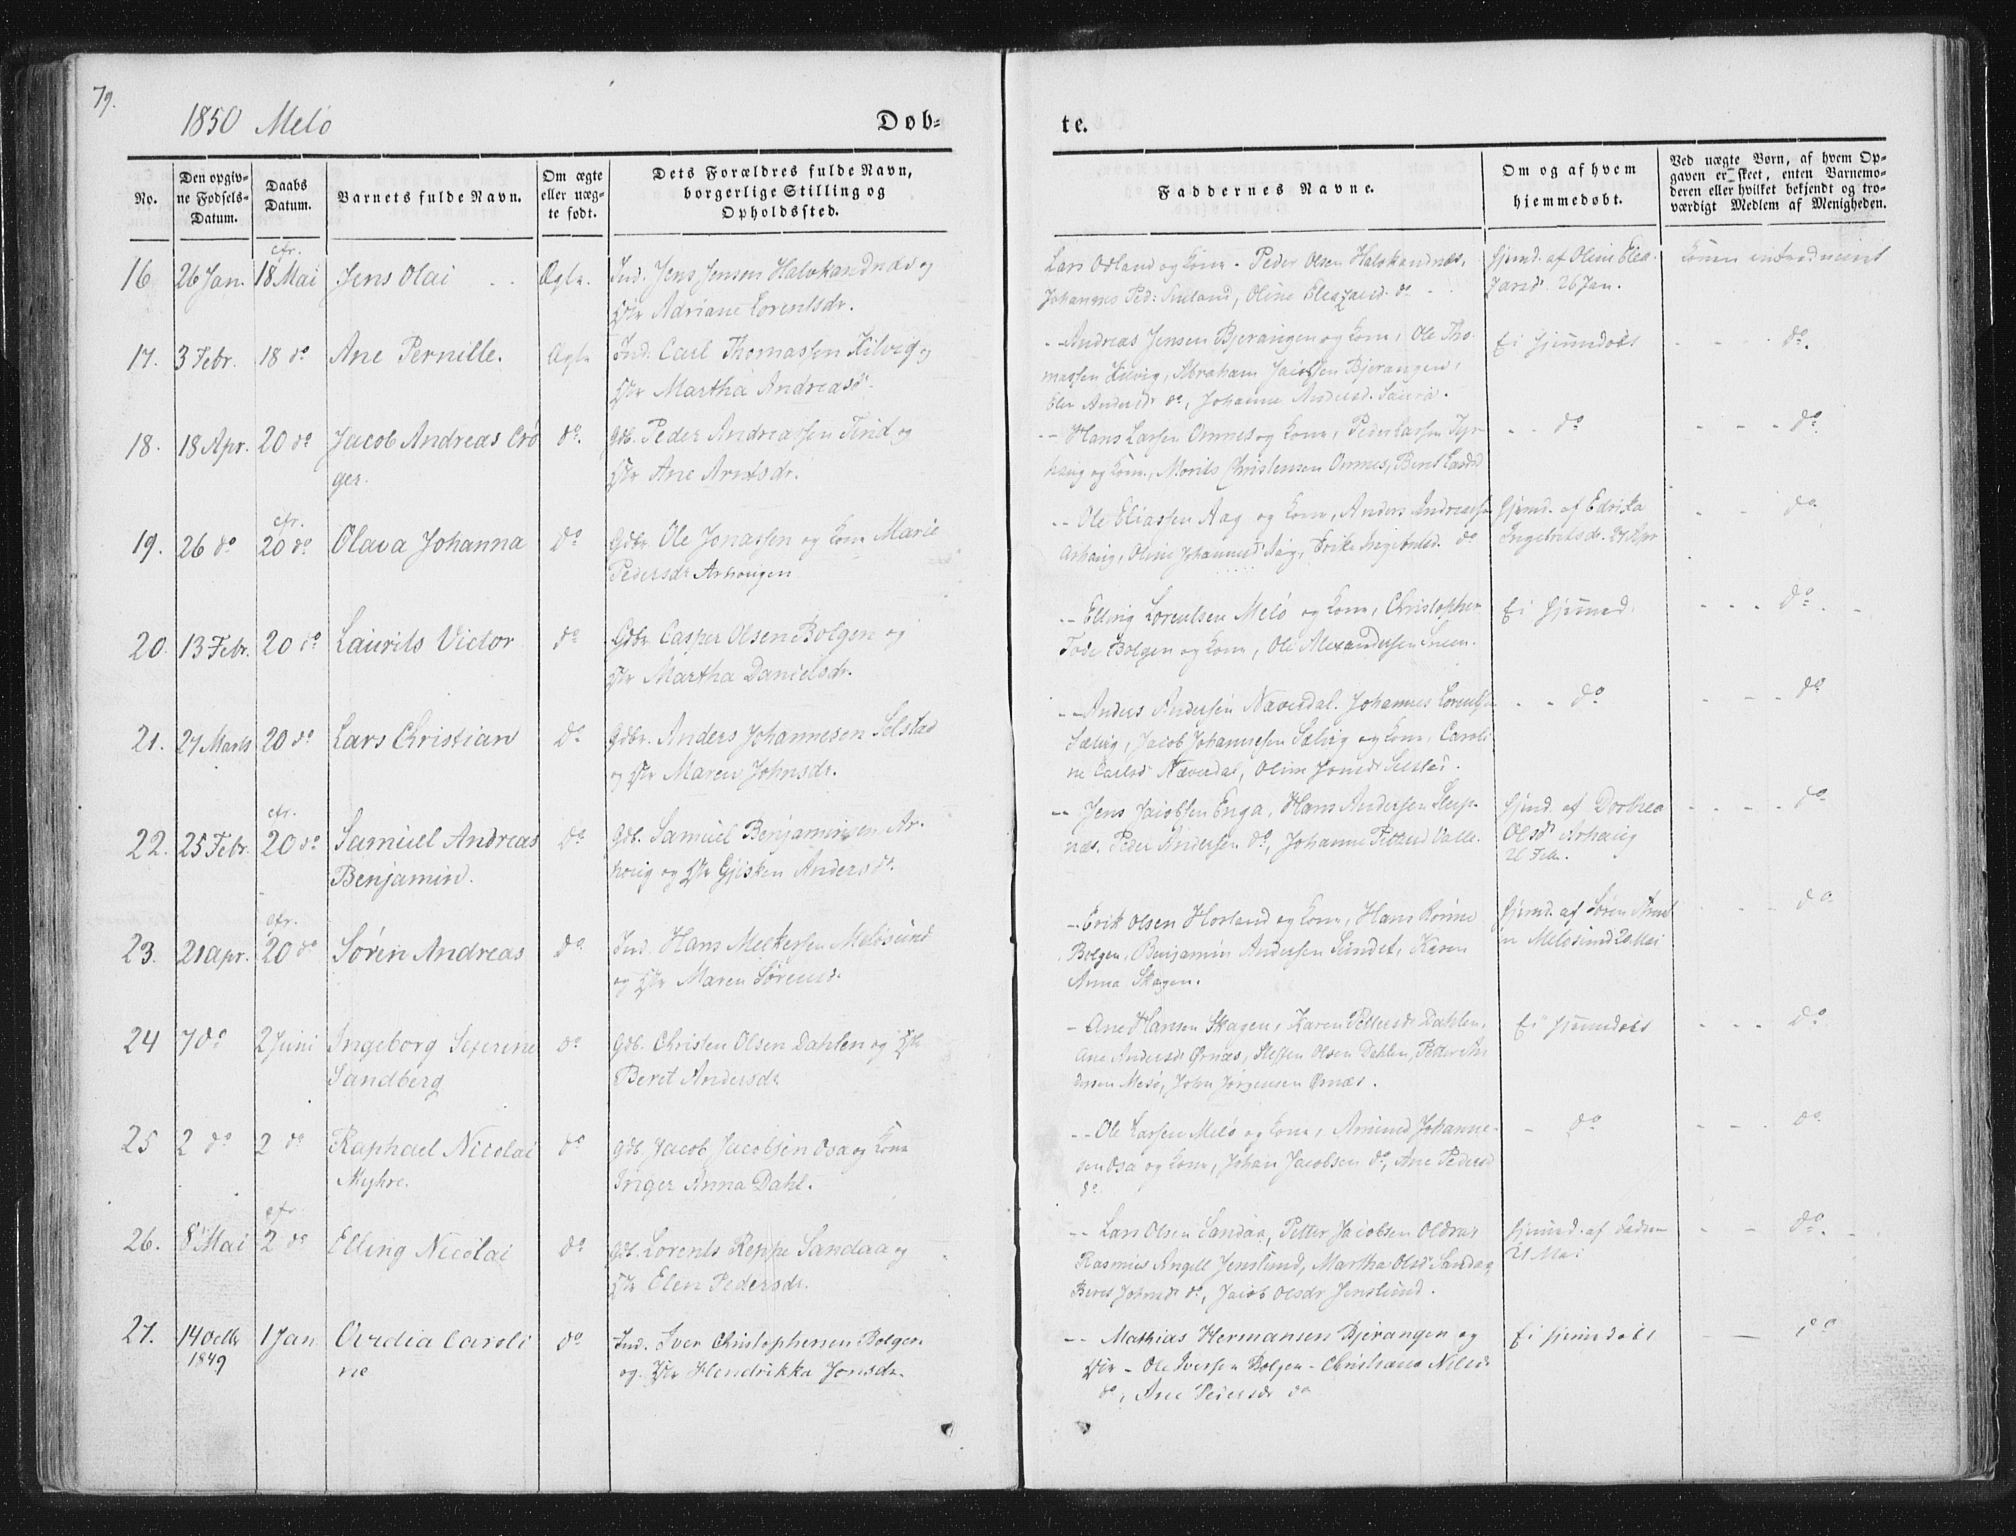 79.
1850 Melö
Døb-
te.
No.
Den opgiv-
ne Fødsels-
Datum.
Daabs
Datum.
Barnets fulde Navn.
Om ægte
eller uæg-
te født.
Dets Forældres fulde Navn,
borgerlige Stilling og
Opholdssted.
Faddernes Navne.
Om og af hvem
hjemmedøbt.
Ved uægte Børn, af hvem Op-
gaven er skeet, enten Barnemo-
deren eller hvilket bekjendt og tro-
værdigt Medlem af Menigheden.
cfr.
16 26 Jan. 18 Mai Jens Olai Ægte. Ind. Jens Jensen Halvkandnæs og
Hr Adriane Lorentsdr.
Lars Odland og Kone - Peder Olsen Halvkandnæs,
Johannes Ped: Oline Eleazarsd. do
Hjemd. af Oline Elea-
zarsdr 26 Jan.
Konen introduceret
17. 3 Febr. 18 do Ane Pernille. Ægte Ind. Carl Thomassen Kilvig og
Hr Martha Andreasdr.
- Andreas Jensen Bjerangen og Kone, Ole Tho-
massen Kilvig, Abraham Jacobsen Bjerangen,
Elen Andersdr do, Johanne Andersd. Saura.
Ei hjemmedøbt
- - - do.
18. 18 Apr. 20 do Jacob Andreas Crö
ger. do. Gdb. Peder Andreassen Tind og
Hr Ane Arntsdr.
-- Hans Larsen Omnes og Kone, Peder Larsen
og Kone, Morits Christensen Omnes, Beret
- - do
- - - do
19. 26 do cfr.
20 do Olava Johanna do Gdbr Ole Jonassen og Kone Marie
Pedersdr Arhougen
-- Ole Eliassen Aag og Kone, Anders Andreassen
Arhaug, Oline Johannesd Aag, Erika Ingebrtsd. do
Hjemd. af Edrika
Ingebritsdr. 27 Apr
- - do
20. 13 Febr. 20 do Laurits Victor do Gdbr Casper Olsen Bolgen og
Hr Martha Danielsdr.
-- Elling Lorentsen Melö og Kone, Christopher
Bolgen og Kone, Ole Alexandersen
Ei hjemmed.
- - - do. -
21. 27 Marts 20 do Lars Christian do Gdbr. Anders Johannesen Selstad
og Hr Maren Johnsdr.
-- Anders Andersen Næverdal. Johannes Lorentsen
Sælvig, Jacob Johannesen Sælvig og Kone, Caroli-
ne Carlsdr Næverdal, Oline Jonsdr Selstad.
- - do
- - - do
22. 25 Febr. cfr.
20 do Samuel Andreas
Benjamin. do Gdb. Samuel Benjaminsen Ar-
houg og Hr Gjisken Andersdr.
-- Jens Jacobsen Enga, Hans Andersen
næs. Peder Andersen do, Johanne Pettersd Valle.
Hjemd. af Dorthea
Olsdr Arhaug
26 Febr.
- - - - do
23. 21 Apr. cfr.
20 do Sören Andreas do Ind. Hans Melkersen Melösund
og Hr Maren Sörensd.
- Erik Olsen Horland og Kone, Hans
Bolgen, Benjamin Andersen Sundet, Karen
Anna Skagen.
Hjemd. af Sören
Melösund 20 Mai
- - - do
24 7 do 2 Juni Ingeborg Severine
Sandberg do Gdb. Christen Olsen Dahlen og Hr
Beret Andersdr
- Ane Hansen Skagen, Karen Pettersdr Dahlen,
Ane Andersdr Ornæs, Steffen Olsen Dahlen, Petter An-
dersen Mesö, John Jörgensen Ornæs.
Ei hjemmdøbt
- - - do
25 2 do 2 do Raphael Nicolai
Myhre. do Gdb. Jacob Jacobsen Osa og Kone
Inger Anna Dahl.
-- Ole Larsen Melö og Kone, Amund Johanne-
sen Osa og Kone, Johan Jacobsen do, Ane Pedersd
do.
- do
- - - do
26. 8 Mai cfr
2 do Elling Nicolai do Gdb. Lorents Reppe Sandaa og
Hr Elen Pedersdr.
-- Lars Olsen Sandaa, Petter Jacobsen Oldraa
Rasmus Angell Jenslund, Martha Olsdr Sandaa,
Beret Johnsdr do, Jacob Olsdr Jenslund.
hjemmd. af Faderen
21 Mai
- - do. -
27. 14 Octb
1849 1 Jan Ovidia Caroli
ne do Ind. Iver Christophersen Bolgen
og Hr Hendrikka Jonsdr.
-- Mathias Hermansen Bjerangen og
Hr - Ole Iversen Bolgen - Christiana Nilsdr
do, Ane Pedersdr do
Ei hjemmdøbt
- - do